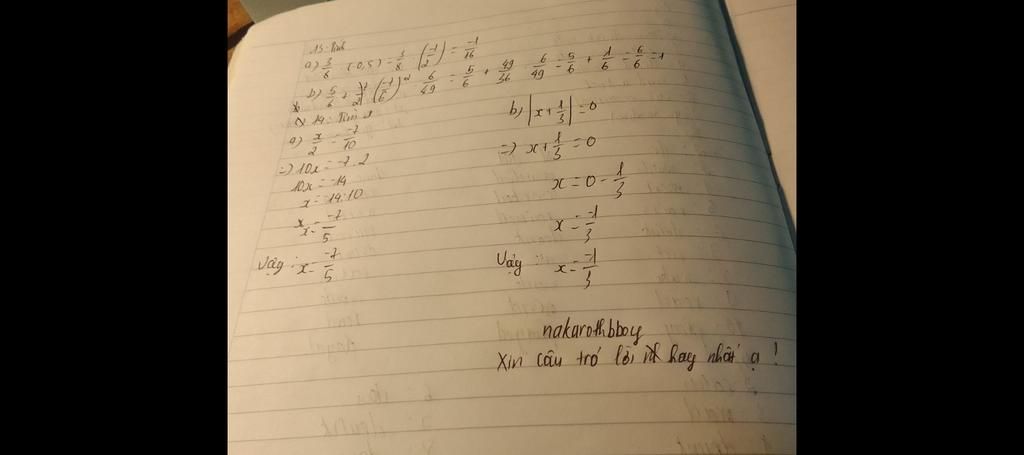 a) 3/8 · (-0,5) = 3/8 · (-1/2) = -1/16
= 5/6 + 49/36 · 6/49 = 5/6 + 1/6 = 6/6 = 1
a) x/2 = -7/10
=) 10x = -7.2
10x = -14
x = -14:10
x = -7/5
Vậy : x = -7/5
b) |x + 1/3| = 0
=) x + 1/3 = 0
x = 0 - 1/3
x = -1/3
Vậy : x = -1/3
nakarothbboy
Xin câu trả lời hay nhất ạ !